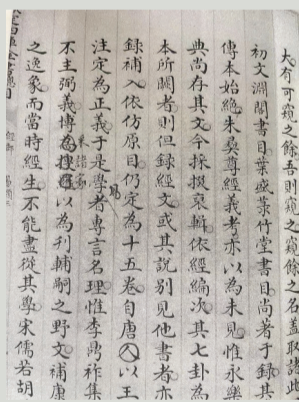 大有可窺之餘吾則窺餘之名盖取諸此
初文淵閣書目葉盛菉竹堂書目尚著于錄其
傳本始絶朱彝尊經義考亦以為未見惟永樂
典尚存其文今採掇裒輯依經編次其七卦為
本所闕者則但録經文或其說別見他書者亦
録補入依仿原目仍定為十五卷自唐人以王
易
注定為正義于是學者專言名理惟李鼎祚集
采諸家
不主弼義博為搜羅以為刋輔嗣之野文補康
之逸象而當時經生不能盡從其學宋儒若胡